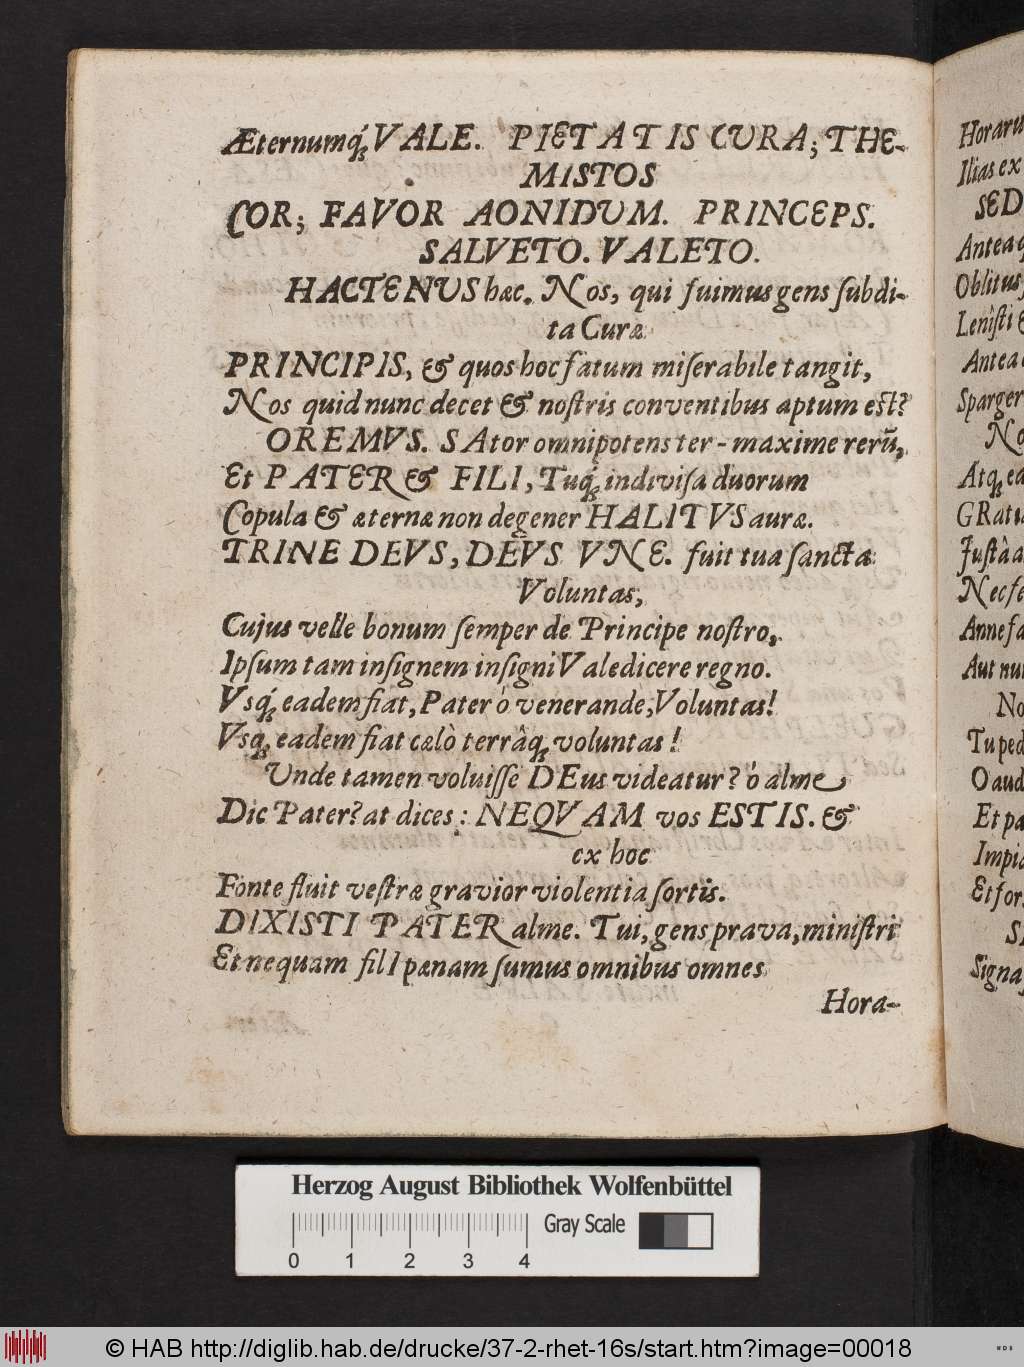 Æternumq́; VALE. PIETATIS CURA; THE-
MISTOS
COR; FAVOR AONIDUM. PRINCEPS.
SALVETO. VALETO.
HACTENUS hæc. Nos, qui fuimus gens ſubdi-
ta Curæ
PRINCIPIS, & quos hoc fatum miſerabile tangit,
Nos quid nunc decet & noſtris conventibus aptum eſt?
OREMVS. SAtor omnipotens ter-maxime rerũ,
Et PATER & FILI, Tuq́; indiviſa duorum
Copula & æternæ non degener HALITVS auræ.
TRINE DEVS, DEVS VNE. fuit tua ſancta
Voluntas,
Cujus velle bonum ſemper de Principe noſtro,
Ipſum tam inſignem inſigni Valedicere regno.
Vsq́; eadem fiat, Pater ó venerande, Voluntas!
Vsq; eadem fiat cælò terrâq; voluntas!
Unde tamen voluiſſe DEus videatur? ó alme
Dic Pater? at dices: NEQVAM vos ESTIS. &
ex hoc
Fonte fluit veſtræ gravior violentia ſortis.
DIXISTI PATER alme. Tui, gens prava, miniſtri
Et nequam filI pænam ſumus omnibus omnes
Hora-
Horaru
Ilias ex
SED
Antea q
Oblitus
Leniſti &
Antea
Sparger
No
Atq; ea
GRatia
Juſtâ a
Nec ſe
Anne fa
Aut nu
No
Tu ped
O aud
Et pa
Impia
Et for
SI
Signa
Herzog August Bibliothek Wolfenbüttel
Gray Scale
0 1 2 3 4
© HAB http://diglib.hab.de/drucke/37-2-rhet-16s/start.htm?image=00018